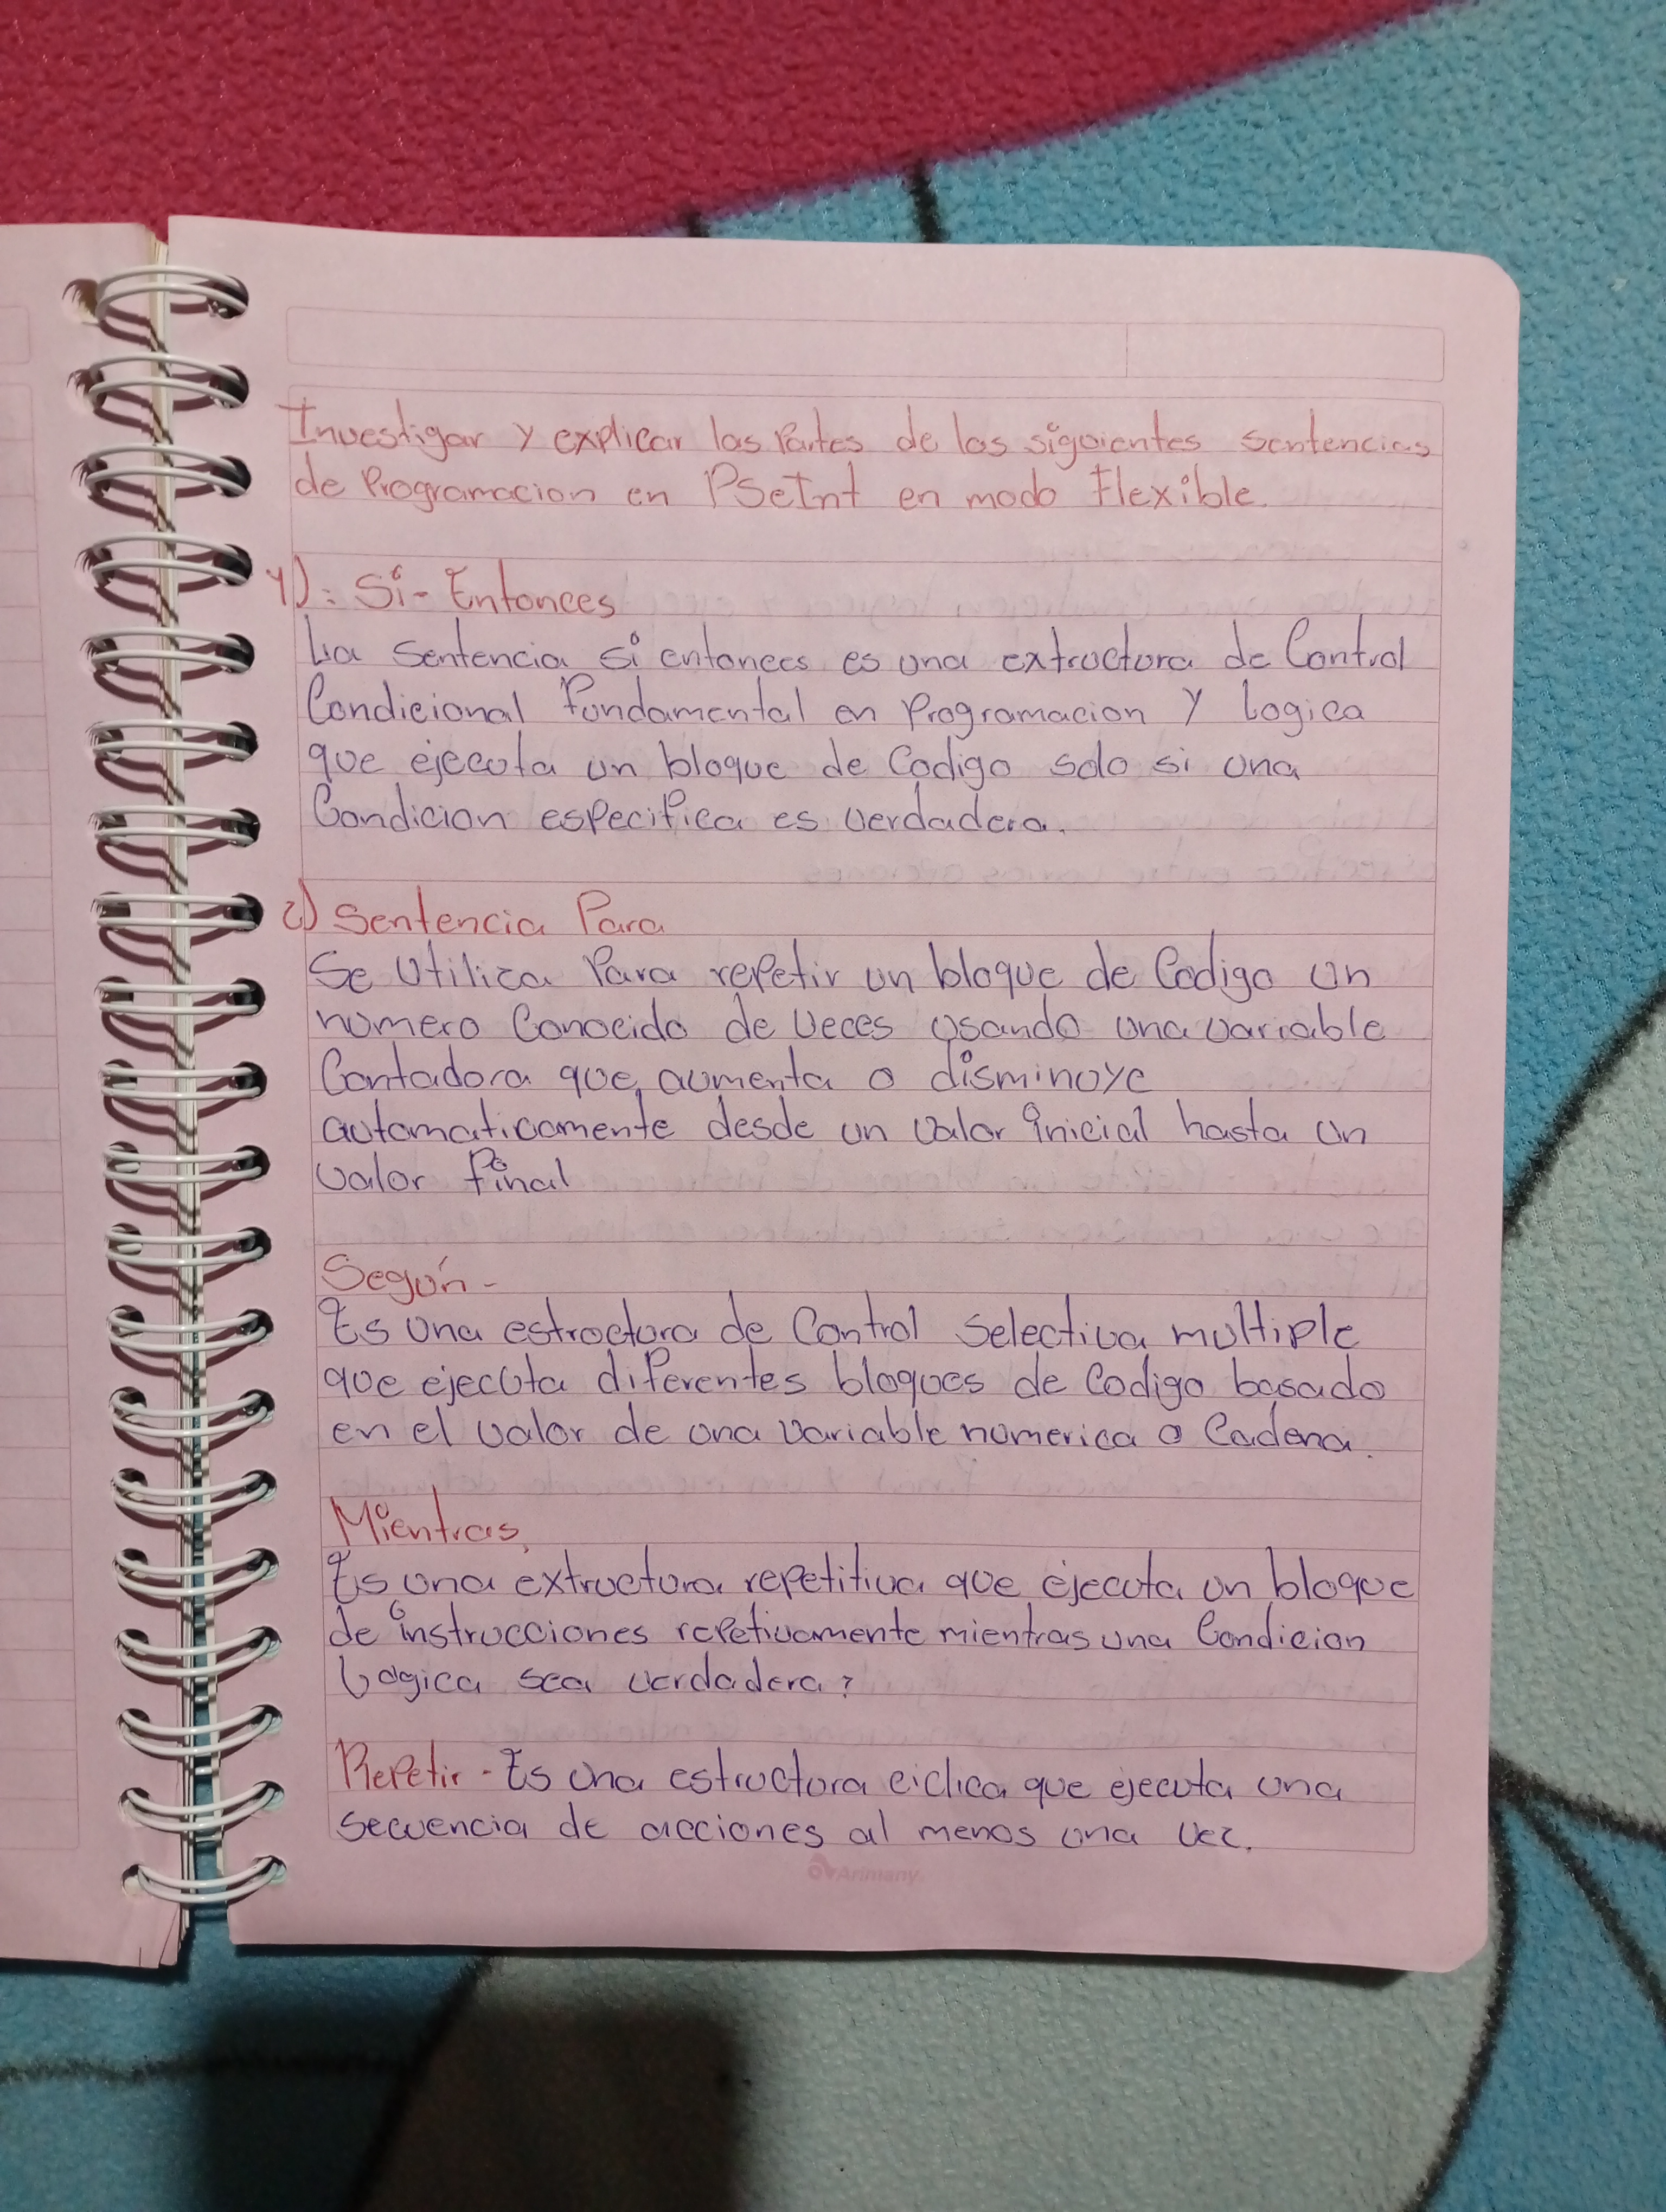 Investigar y explicar las Partes de las siguientes sentencias
de Programacion en PSeInt en modo Flexible.
1): Si- Entonces
La sentencia si entonces es una extructura de Control
Condicional Fundamental en Programacion y Logica
que ejecuta un bloque de Codigo solo si una
Condicion especifica es verdadera.
2) Sentencia Para
Se Utiliza Para repetir un bloque de Codigo un
numero Conocido de veces usando una variable
Contadora que aumenta o disminuye
automaticamente desde un valor inicial hasta un
valor final
Según-
Es una estructura de Control selectiva multiple
que ejecuta diferentes bloques de Codigo basado
en el valor de una variable numerica o Cadena.
Mientras,
Es una extructura repetitiva que ejecuta un bloque
de instrucciones repetivamente mientras una Condicion
Logica sea verdadera?
Repetir - Es una estructura ciclica que ejecuta una
secuencia de acciones al menos una vez.
Arimany